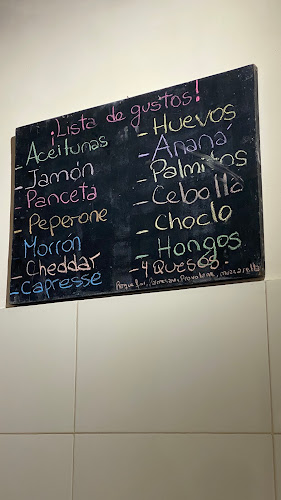 ¡Lista de gustos!
- Aceitunas
- Jamón
- Panceta
- Peperone
- Morrón
- Cheddar
- Capresse
- Huevos
- Ananá
- Palmitos
- Cebolla
- Choclo
- Hongos
- 4 Quesos.
Parmesano, Provolone, muzzarella